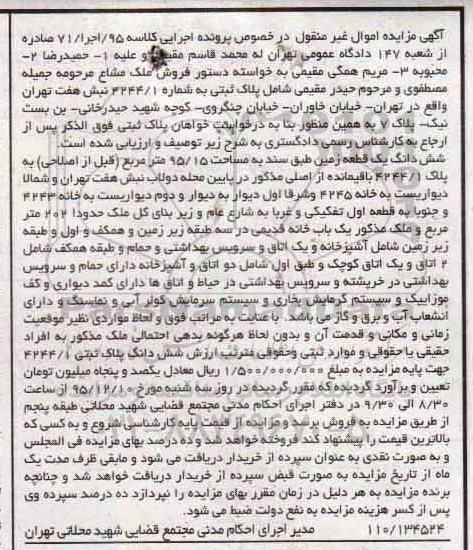 آگهی مزایده اموال غیر منقول در خصوص پرونده اجرایی کلاسه ۹۵/اجرا/۷۱ صادره
از شعبه ۱۴۷ دادگاه عمومی تهران له محمد قاسم مقیمی و علیه ۱- حمیدرضا ۲-
محبوبه ۳- مریم همگی مقیمی به خواسته دستور فروش ملک مشاع مرحومه جمیله
مصطفوی و مرحوم حیدر مقیمی شامل پلاک ثبتی به شماره ۴۲۴۴/۱ نبش هفت تهران
واقع در تهران- خیابان خاوران- خیابان جنگروی- کوچه شهید حیدرخانی- بن بست
نیک- پلاک ۷ به همین منظور بنا به درخواست خواهان پلاک ثبتی فوق الذکر پس از
ارجاع به کارشناس رسمی دادگستری به شرح زیر توصیف و ارزیابی شده است.
شش دانگ یک قطعه زمین طبق سند به مساحت ۹۵/۱۵ متر مربع (قبل از اصلاحی) به
پلاک ۴۲۴۴/۱ باقیمانده از اصلی مذکور در پایین محله دولاب نبش هفت تهران و شمالا
دیواریست به خانه ۴۲۴۵ و شرقا اول دیوار به دیوار و دوم دیواریست به خانه ۴۲۴۳
و جنوبا به قطعه اول تفکیکی و غربا به شارع عام و زیر بنای کل ملک حدودا ۲۰۲ متر
مربع و ملک مذکور یک باب خانه قدیمی در سه طبقه زیر زمین و همکف و اول و طبقه
زیر زمین شامل آشپزخانه و یک اتاق و سرویس بهداشتی و حمام و طبقه همکف شامل
۲ اتاق و یک اتاق کوچک و طبق اول شامل دو اتاق و آشپزخانه دارای حمام و سرویس
بهداشتی در خرپشته و سرویس بهداشتی در حیاط و اتاق ها دارای کمد دیواری و کف
موزاییک و سیستم گرمایش بخاری و سیستم سرمایش کولر آبی و نماسنگ و دارای
انشعاب آب و برق و گاز می باشد. با عنایت به مراتب فوق و لحاظ مواردی نظیر موقعیت
زمانی و مکانی و قدمت آن و بدون لحاظ هرگونه بدهی احتمالی ملک مذکور به افراد
حقیقی یا حقوقی و موارد ثبتی وحقوقی مترتب ارزش شش دانگ پلاک ثبتی ۴۲۴۴/۱
جهت پایه مزایده به مبلغ ۱/۵۰۰/۰۰۰/۰۰۰ ریال معادل یکصد و پنجاه میلیون تومان
تعیین و برآورد گردیده که مقرر گردیده در روز سه شنبه مورخ ۹۵/۱۲/۱۰ از ساعت
۸/۳۰ الی ۹/۳۰ در دفتر اجرای احکام مدنی مجتمع قضایی شهید محلاتی طبقه پنجم
از طریق مزایده به فروش برسد و مزایده از قیمت پایه کارشناسی شروع و به کسی که
بالاترین قیمت را پیشنهاد کند فروخته خواهد شد و ده درصد بهای مزایده فی المجلس
و به صورت نقدی به عنوان سپرده از خریدار دریافت می شود و مابقی ظرف مدت یک
ماه از تاریخ مزایده به صورت قبض سپرده از خریدار دریافت خواهد شد و چنانچه
برنده مزایده به هر دلیل در زمان مقرر بهای مزایده را نپردازد ده درصد سپرده وی
پس از کسر هزینه مزایده به نفع دولت ضبط می شود.
۱۱۰/۱۳۴۵۲۴ مدیر اجرای احکام مدنی مجتمع قضایی شهید محلاتی تهران